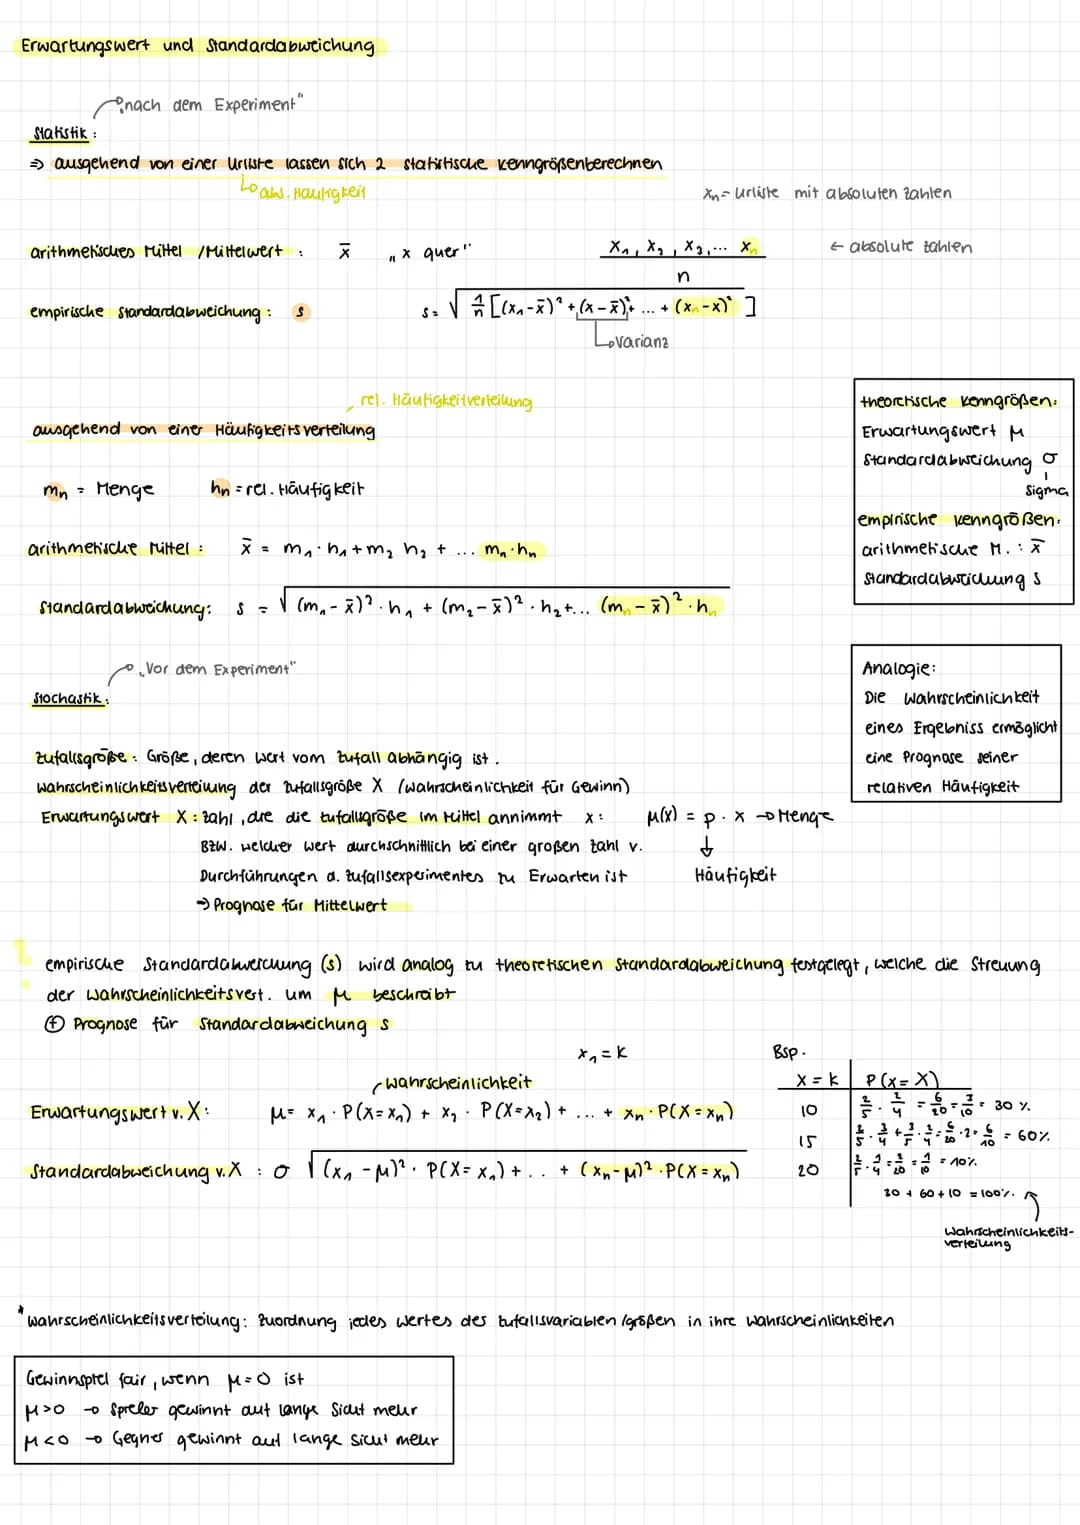 Erwartungswert und Standardabweichung
„nach dem Experiment"
Statistik:
⇒ ausgehend von einer Urliste lassen sich 2 statistische Kenngrößen berechnen
↳ abs. Häufigkeit
xn = Urliste mit absoluten Zahlen
arithmetisches Mittel / Mittelwert : x̄ „x quer" (x₁, x₂, x₃, ... xn) / n ← absolute Zahlen
empirische Standardabweichung : s s = √(1/n [(x₁-x̄)² + (x-x̄)² + ... + (xn-x)²])
↳ Varianz
rel. Häufigkeitverteilung
ausgehend von einer Häufigkeitsverteilung
mn = Menge hn = rel. Häufigkeit
arithmetische Mittel : x̄ = m₁·h₁ + m₂ h₂ + ... mn·hn
Standardabweichung: s = √((m₁-x̄)²·h₁ + (m₂-x̄)²·h₂ + ... (mn-x̄)²·hn)
theoretische Kenngrößen:
Erwartungswert μ
Standardabweichung σ
Sigma
empirische Kenngrößen:
arithmetische M. : x̄
Standardabweichung s
„Vor dem Experiment"
Stochastik:
Analogie:
Die Wahrscheinlichkeit
eines Ergebniss ermöglicht
eine Prognose seiner
relativen Häufigkeit
Zufallsgröße : Größe, deren Wert vom Zufall abhängig ist.
Wahrscheinlichkeitsverteilung der Zufallsgröße X (Wahrscheinlichkeit für Gewinn)
Erwartungswert X : Zahl, die die Zufallsgröße im Mittel annimmt x: μ(x) = p · x → Menge
BZW. welcher Wert durchschnittlich bei einer großen Zahl v. ↓
Durchführungen d. Zufallsexperimentes zu Erwarten ist Häufigkeit
→ Prognose für Mittelwert
! empirische Standardabweichung (s) wird analog zu theoretischen Standardabweichung festgelegt, welche die Streuung
der Wahrscheinlichkeitsvert. um μ beschreibt
⊕ Prognose für Standardabweichung s
x₁ = k
Wahrscheinlichkeit
Erwartungswert v. X: μ = x₁ · P(X=x₁) + x₂ · P(X=x₂) + ... + xn · P(X=xn)
Standardabweichung v. X : σ √((x₁-μ)² · P(X=x₁) + .. + (xn-μ)² · P(X=xn))
Bsp.
X = k P(x = X)
10 2/5 · 2/4 = 6/20 = 3/10 = 30 %
15 2/5 · 3/4 + 3/5 · 2/4 = 6/20 · 2 = 6/10 = 60%
20 2/5 · 1/4 = 2/20 = 1/10 = 10%
30 + 60 + 10 = 100%.
Wahrscheinlichkeits-
verteilung
*Wahrscheinlichkeitsverteilung: Zuordnung jedes Wertes des Zufallsvariablen/größen in ihre Wahrscheinlichkeiten
Gewinnspiel fair, wenn μ=0 ist
μ>0 → Spieler gewinnt auf lange Sicht mehr
μ<0 → Gegner gewinnt auf lange Sicht mehr